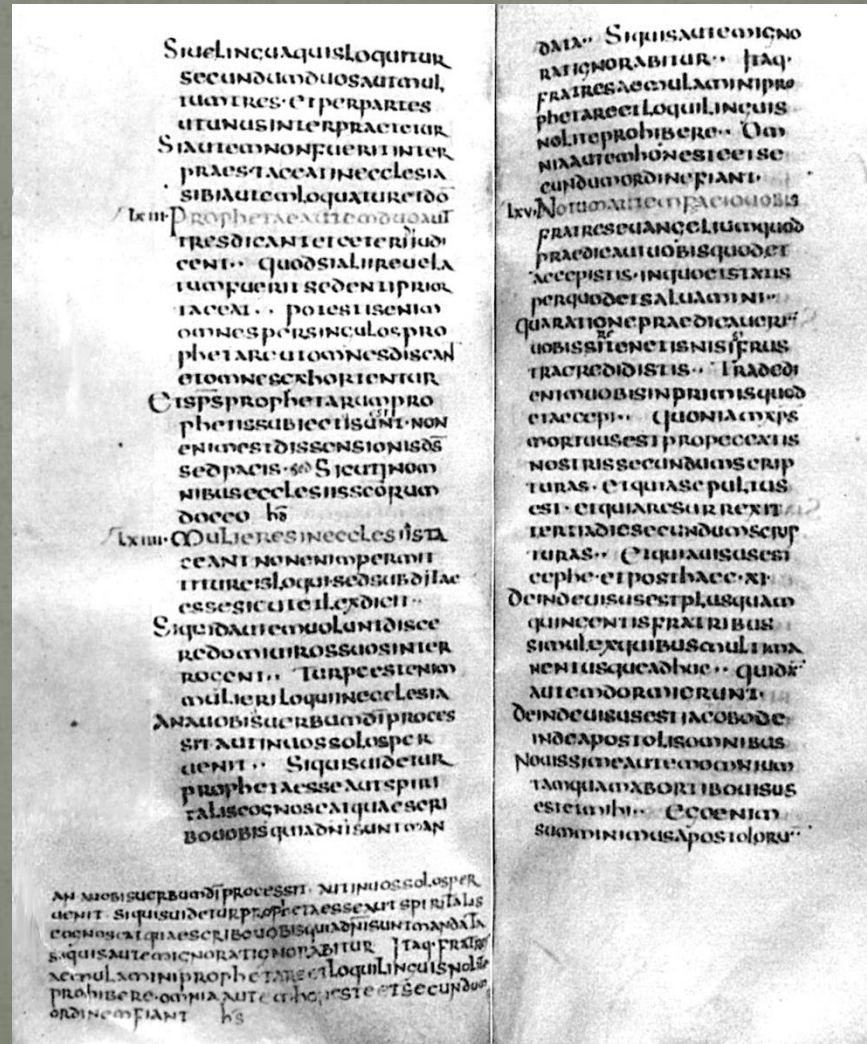 SIUELINGUAQUISLOQUITUR
SECUNDUMDUOSAUTMUL
TUMTRES· ETPERPARTES
UTUNUSINTERPRAETETUR
SIAUTEMNONFUERITINTER
PRAES·TACEATINECCLESIA
SIBIAUTEMLOQUATURETDŌ
LXIII· PROPHETAEAUTEMDUOAUT
TRESDICANTETCETERIIUDI
CENT·· QUODSIALIIREUELA
TUMFUERITSEDENTIPRIOR
TACEAT·· POTESTISENIM
OMNESPERSINGULOSPRO
PHETAREUTOMNESDISCAN
ETOMNESEXHORTENTUR
ETSP̄SPROPHETARUMPRO
PHETISSUBIECTISUNT·NON
ENIMESTDISSENSIONISD̄S
SEDPACIS· SICUTINOM
NIBUSECCLESIISSC̄ORUM
DOCEO h̄s
LXIIII· MULIERESINECCLESIISTA
CEANTNONENIMPERMIT
TITUREISLOQUI·SEDSUBDITAE
ESSESICUTETLEXDICIT··
SIQUIDAUTEMUOLUNTDISCE
REDOMIUIROSSUOSINTER
ROGENT·· TURPEESTENIM
MULIERILOQUIINECCLESIA
ANAUOBISUERBUMDĪPROCES
SIT·AUTINUOSSOLOSPER
UENIT·· SIQUISUIDETUR
PROPHETAESSEAUTSPIRI
TALISCOGNOSCATQUAESCRI
BOUOBISQUIADN̄ISUNTMAN
ANAUOBISUERBUMDĪPROCESSIT· AUTINUOSSOLOSPER
UENIT· SIQUISUIDETURPROPHETAESSEAUTSPIRITALIS
COGNOSCATQUAESCRIBOUOBISQUIADN̄ISUNTMANDATA
SIQUISAUTEMIGNORATIGNORABITUR ITAQ·FRATRES
AEMULAMINIPROPHETAREETLOQUILINGUISNOLITE
PROHIBERE·OMNIAAUTEMHONESTEETSECUNDUM
ORDINEMFIANT h̄s
DATA·· SIQUISAUTEMIGNO
RATIGNORABITUR·· ITAQ·
FRATRESAEMULAMINIPRO
PHETAREETLOQUILINGUIS
NOLITEPROHIBERE·· OM
NIAAUTEMHONESTEETSE
CUNDUMORDINEFIANT·
LXV· NOTUMAUTEMFACIOUOBIS
FRATRESEUANGELIUMQUOD
PRAEDICAUIUOBISQUODET
ACCEPISTIS·INQUOETSTATIS
PERQUODETSALUAMINI··
QUARATIONEPRAEDICAUERI
UOBISSITENETISNISIFRUS
TRACREDIDISTIS·· TRADEDI
ENIMUOBISINPRIMISQUOD
ETACCEPI·· QUONIAMXP̄S
MORTUUSESTPROPECCATIS
NOSTRISSECUNDUMSCRIP
TURAS· ETQUIASEPULTUS
EST· ETQUIARESURREXIT
TERTIADIESECUNDUMSCRIP
TURAS·· ETQUIAUISUSEST
CEPHE·ETPOSTHAEC·XI·
DEINDEUISUSESTPLUSQUAM
QUINGENTISFRATRIBUS
SIMULEXQUIBUSMULTIMA
NENTUSQUEADHUC·· QUIDA
AUTEMDORMIERUNT·
DEINDEUISUSESTIACOBODE
INDEAPOSTOLISOMNIBUS
NOUISSIMEAUTEMOMNIUM
TAMQUAMABORTIBOUISUS
ESTETMIHI·· EGOENIM
SUMMINIMUSAPOSTOLORU··